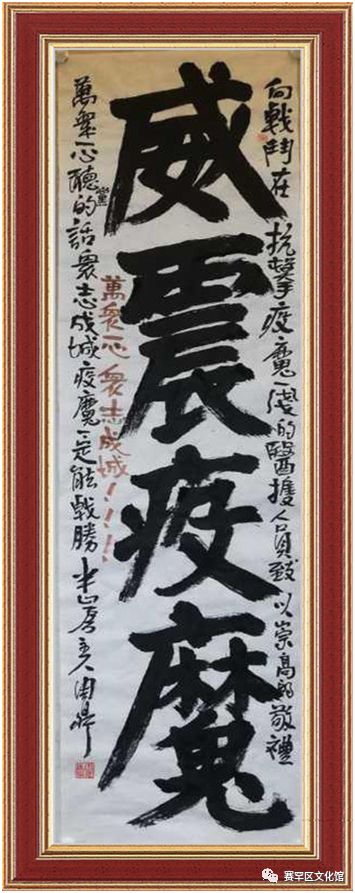 向戰鬥在抗擊疫魔一線的醫護人員致以崇高的敬禮
威震疫魔
萬衆一心衆志成城！！！！
萬衆一心聽黨的話衆志成城疫魔一定能戰勝
赛罕区文化馆